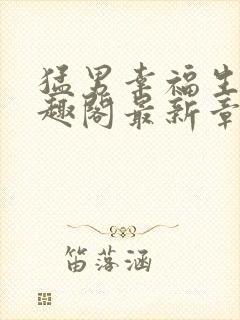 猛男幸福生
趣阁最新章
笛落涵